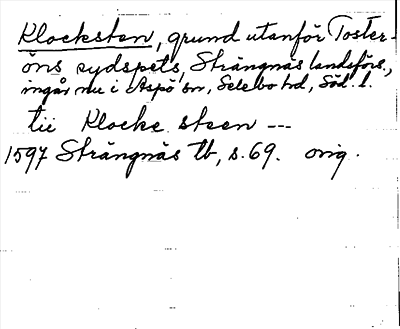 Klocksten, grund utanför Toster-
öns sydspets, Strängnäs landsförs.,
ingår nu i Aspö sn, Selebo hd, Söd. l.
tii Klocke steen ---
1597 Strängnäs tb, s. 69. orig.